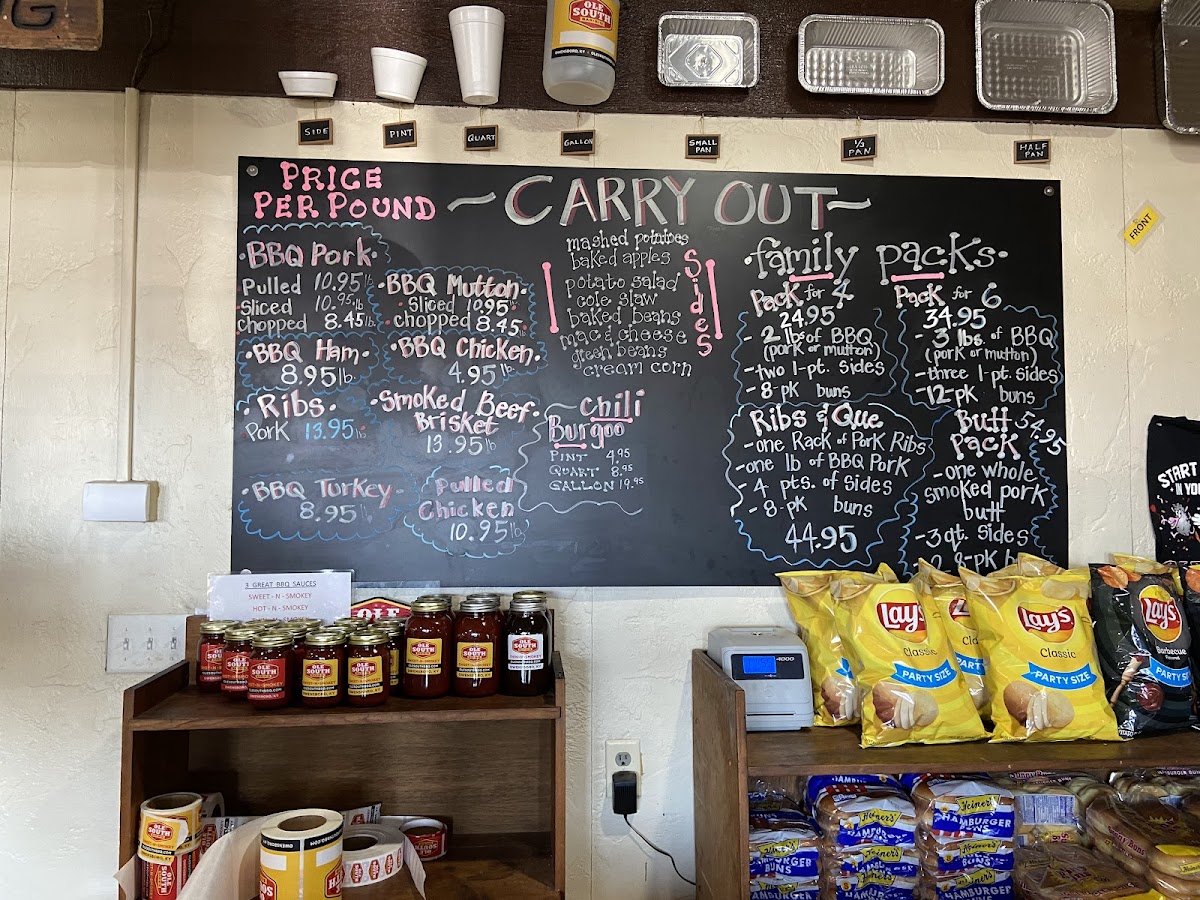 OLE
SOUTH
BAR-B-Q
OWENSBORO, KY
SIDE
PINT
QUART
GALLON
SMALL
PAN
1/3
PAN
HALF
PAN
FRONT
PRICE
PER POUND
~CARRY OUT~
·BBQ Pork·
Pulled 10.95 lb
Sliced 10.95 lb
chopped 8.45 lb
·BBQ Mutton·
Sliced 10.95
chopped 8.45
·BBQ Ham·
8.95 lb
·BBQ Chicken·
4.95 lb
·Ribs·
Pork 13.95 lb
·Smoked Beef·
Brisket
13.95 lb
·BBQ Turkey·
8.95 lb
Pulled
Chicken
10.95 lb
Sides
mashed potatoes
baked apples
potato salad
cole slaw
baked beans
mac & cheese
green beans
cream corn
chili
Burgoo
PINT 4.95
QUART 8.95
GALLON 19.95
·family packs·
Pack for 4
24.95
- 2 lbs of BBQ
(pork or mutton)
- two 1-pt. sides
- 8-pk buns
Pack for 6
34.95
- 3 lbs. of BBQ
(pork or mutton)
- three 1-pt. sides
- 12-pk buns
Ribs & Que
- one Rack of Pork Ribs
- one lb of BBQ Pork
- 4 pts. of sides
- 8-pk buns
44.95
Butt 54.95
Pack
- one whole
smoked pork
butt
- 3 qt. sides
8-pk b
START
IN YO
3 GREAT BBQ SAUCES
SWEET - N - SMOKEY
HOT - N - SMOKEY
OLE
OLE
SOUTH
OWENSBORO, KY
Lay's
Classic
PARTY SIZE
Lay's
Classic
PARTY SIZE
Lay's
Barbecue
PARTY SI
Heiner's
HAMBURGER
BUNS
Heiner's
HAMBURGER
BUNS